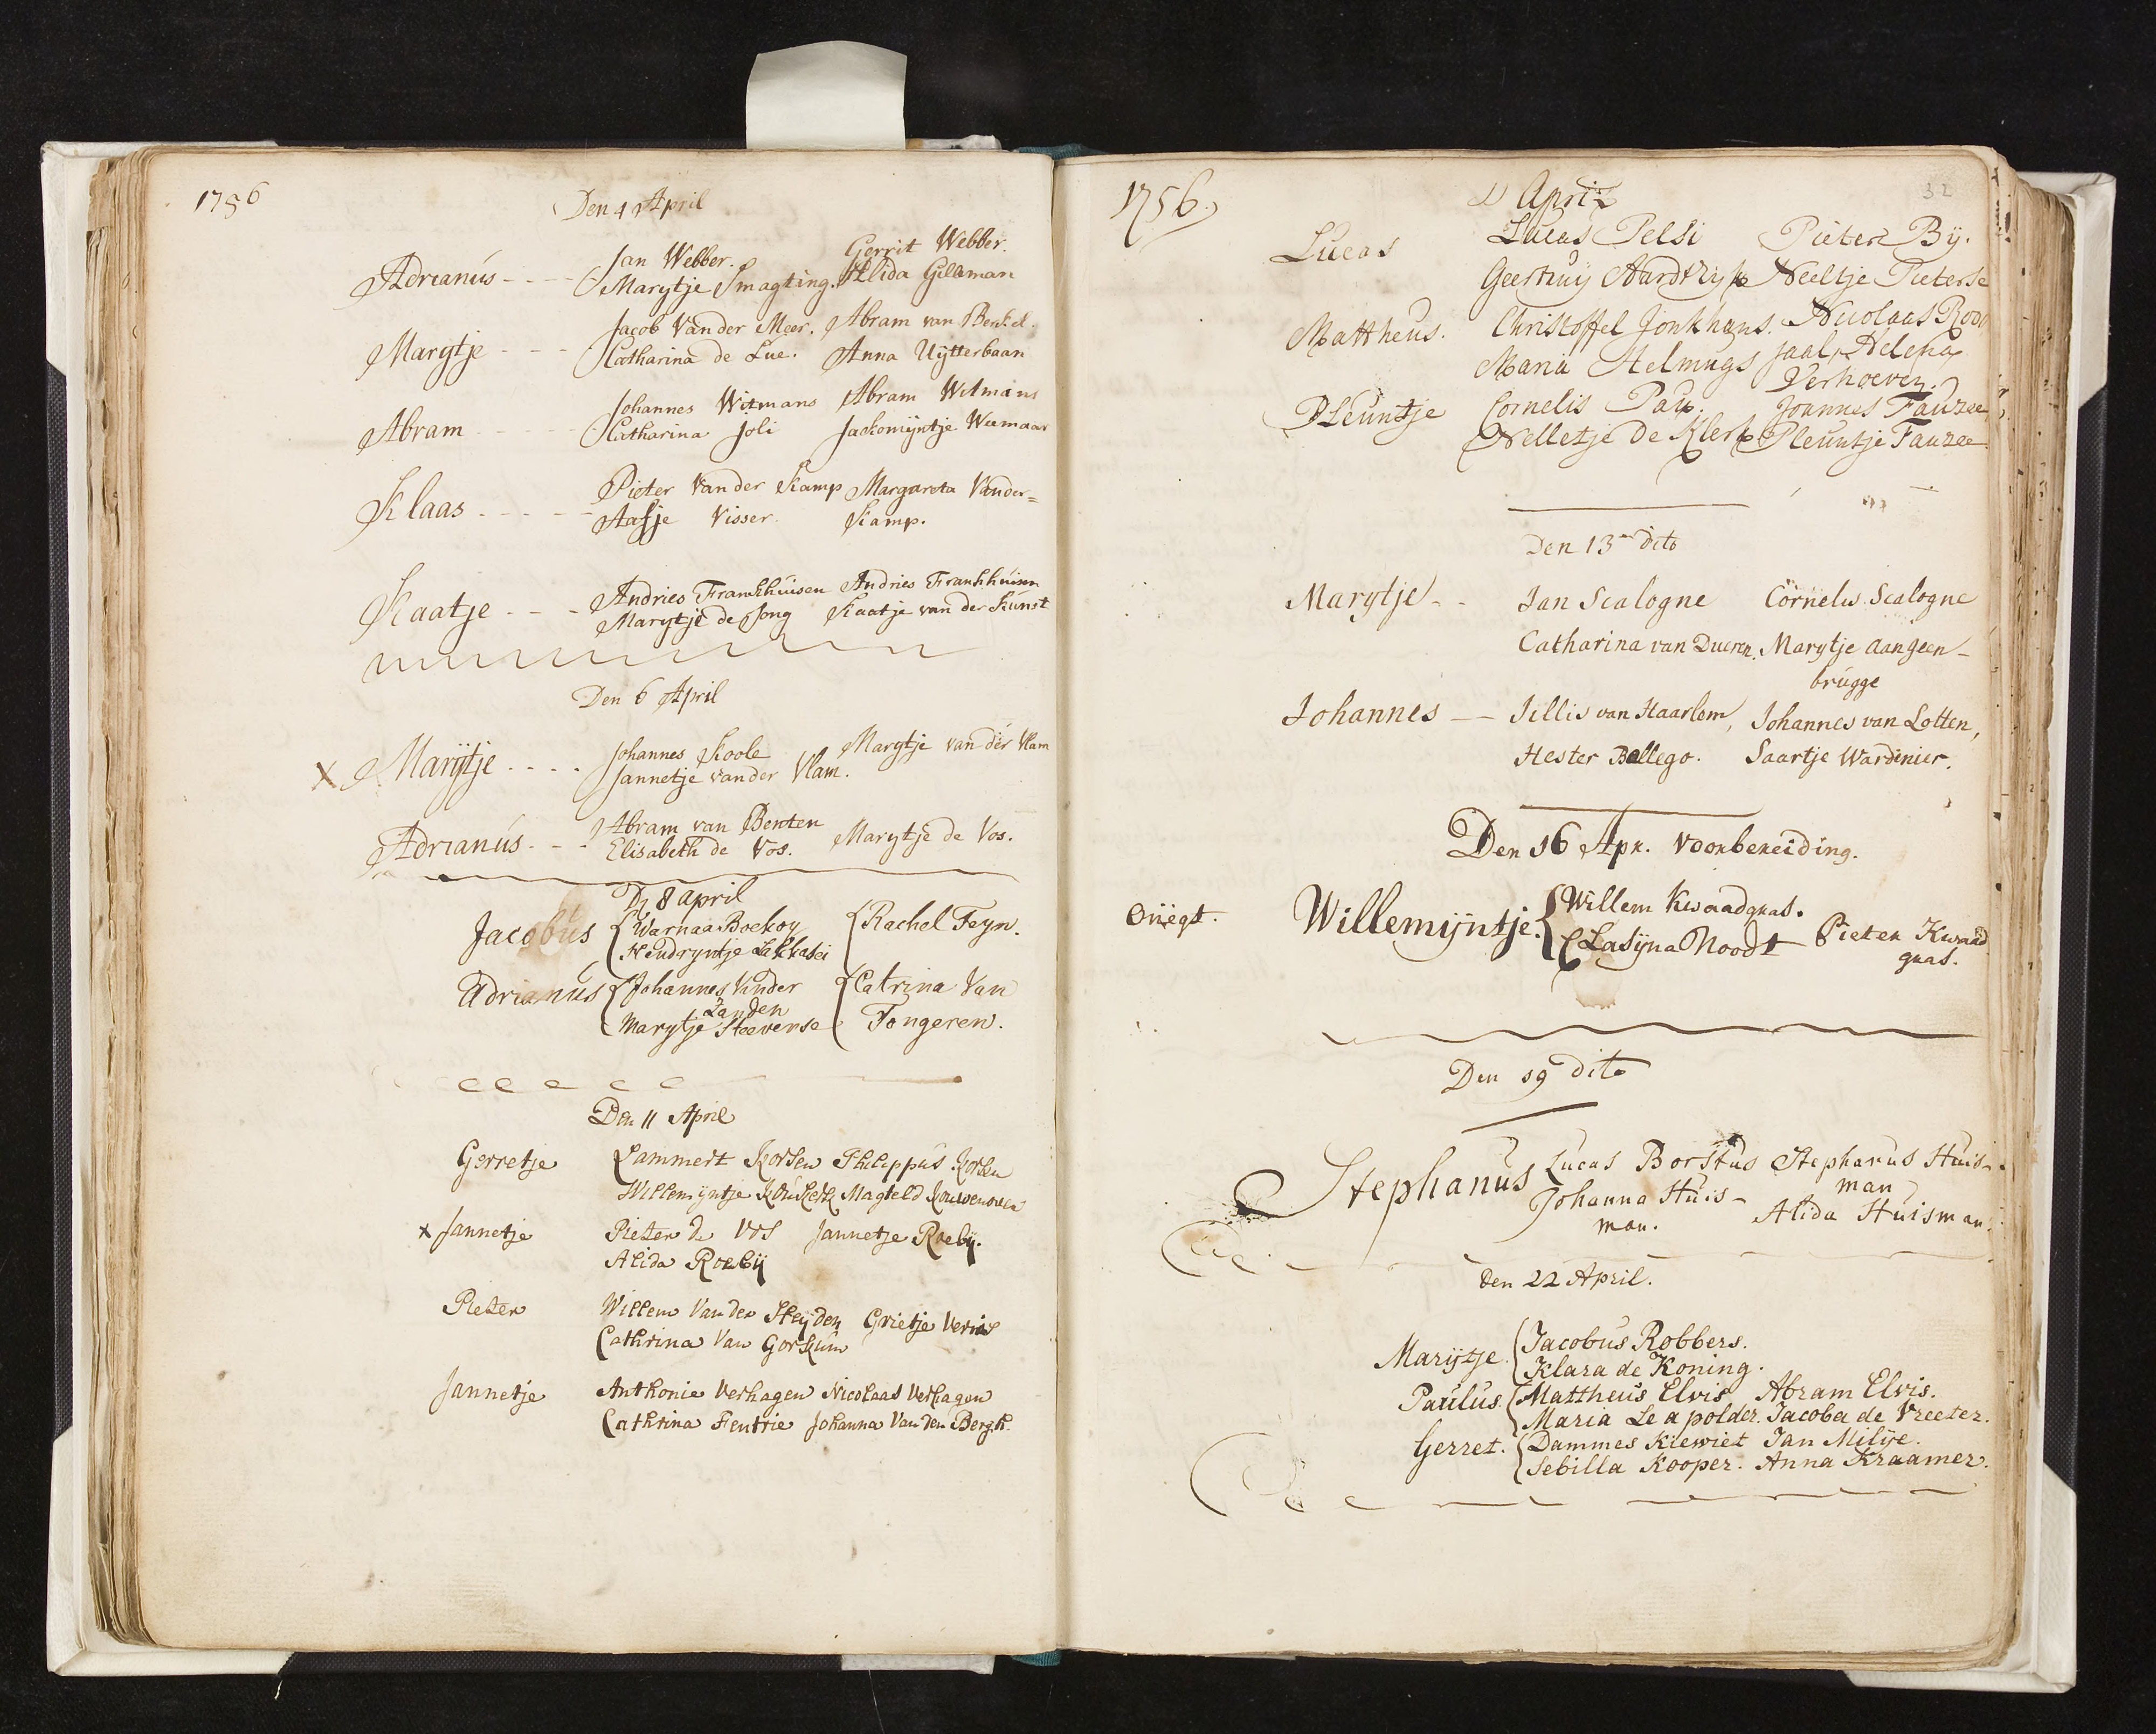 1756
Den 4 April
Jan Webber. Gerrit Webber.
Adrianus - - - Marytje Smagting. Alida Gilleman
Jacob Van der Meer. Abram van Benkel.
Margtje - - - Catharina de Lue. Anna Uytterbaan
Johannes Witmans Abram Witmans
Abram - - - Catharina Joli Jackomijntje Weemaar
Pieter Van der Kamp Margareta Vander=
Klaas - - - Aafje Visser. Kamp.
Andries Frankhuisen Andries Frankhuisen
Kaatje - - - Marytje de Jong Kaatje van der Kunst
Den 6 April
Johannes Koole Margtje van der Vlam
X Marijtje - - - - Jannetje van der Vlam.
Abram van Benten
Adrianus - - - Elisabeth de Vos. Marytje de Vos.
Dn 8 april
Jacobus Warnaa Boekoy Rachel Feyn.
Hendryntje Lakkasei
Adrianus Johannes Vander Catrina Van
Landen
Marytje Steevense Tongeren.
Den 11 April
Gerretje Lammert Korsen Philippus Korsen
Willemyntje Magteld Kouwenoven
x Jannetje Pieter de Vos Jannetje Roebij.
Alida Roebij
Pieter Willem Van der Heyden Grietje
Cathrina Van Gorkum
Jannetje Anthonie Verhagen Nicolaas Verhagen
Cathrina Fentrie Johanna Van den Bergh.
1756. 11 April 32
Lucas Lucas Pelsi Pieter By.
Geertruy Aardryk Neeltje Pieterse
Mattheus. Christoffel Jonkhans. Nicolaas Rood
Maria Helmugs Jaal, Helena
Verhoeven.
Pleuntje Cornelis Pau. Joannes Fauzee
Nelletje de Klerk Pleuntje Fauzee.
Den 13en dito
Marytje - - Jan Scalogne Cornelis Scalogne
Catharina van Dueren. Marytje aangeen-
brugge
Johannes - - Jillis van Haarlem, Johannes van Lotten,
Hester Ballego. Saartje Wardinier.
Den 16 Apr. voorbereiding.
Onegt. Willemijntje. Willem Kwaadgras.
Lasijna Noodt Pieter Kwaad
gras.
Den 19 dito
Stephanus Lucas Borstus Stephanus Huis-
Johanna Huis- man
man. Alida Huisman.
den 22 April.
Marijtje. Jacobus Robbers.
Klara de Koning.
Paulus. Mattheus Elvis Abram Elvis.
Maria Leapolder. Jacoba de Vreeter.
Gerret. Dammes Kiewiet Jan Milije.
Sebilla Kooper. Anna Kraamer.